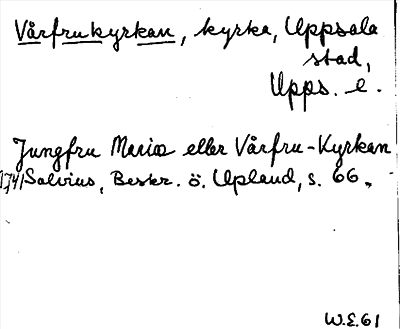 Vårfrukyrkan, kyrka, Uppsala
stad,
Upps. l.
Jungfru Mariæ eller Vårfru-Kyrkan
1741 Salvius, Beskr. ö. Upland, s. 66.
W.E.61